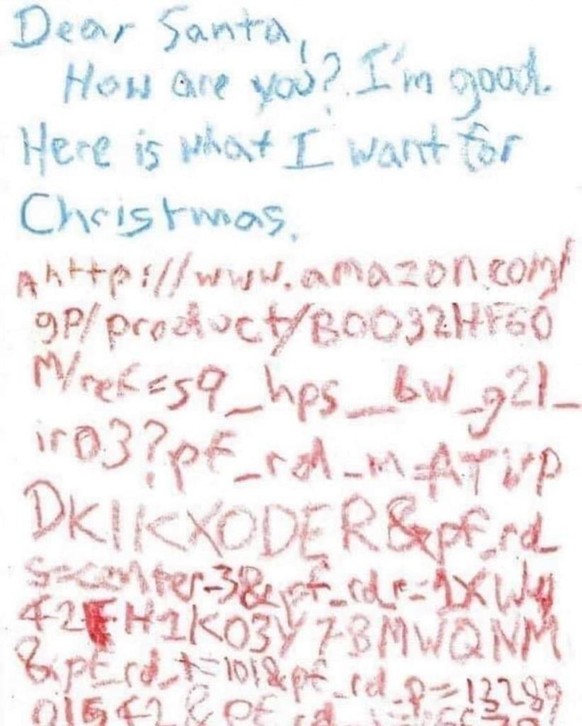 Dear Santa,
How are you? I'm good.
Here is what I want for
Christmas.
A http://www.amazon.com/
gp/product/B0032HF60
M/ref=s9_hps_bw_g21_
ir03?pf_rd_m=ATVP
DKIKX0DER&pf_rd_
s=center-3&pf_rd_r=1XWY
42FH1K03Y78MWQNM
&pf_rd_t=101&pf_rd_p=13289
01542&pf_rd_